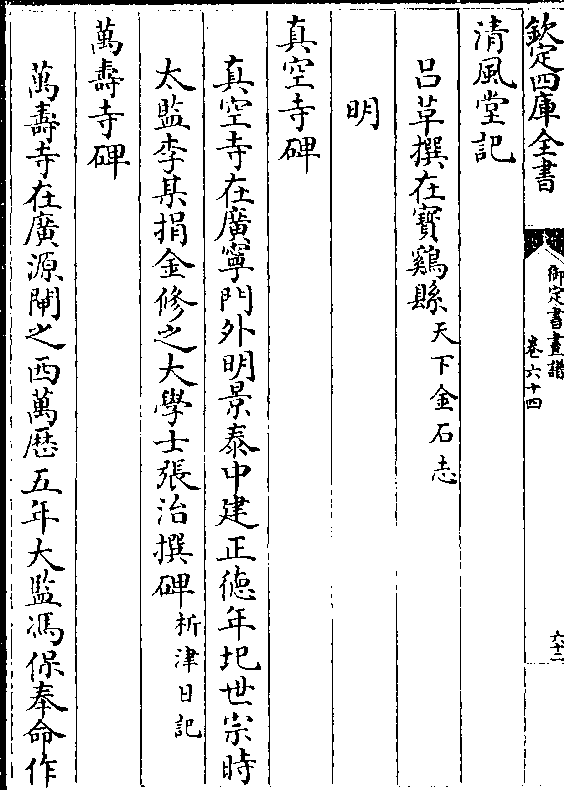 欽定四庫全書
御定書畫譜
卷六十四
六十二
清風堂記
吕草撰在寶鷄縣天下金石志
明
真空寺碑
真空寺在廣寧門外明景泰中建正德年圮世宗時
太監李某捐金修之大學士張治撰碑析津日記
萬壽寺碑
萬壽寺在廣源閘之西萬厯五年大監馮保奉命作